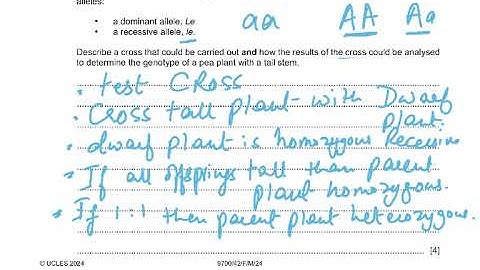 alleles:
aa AA Aa
• a dominant allele, Le
• a recessive allele, le.
Describe a cross that could be carried out and how the results of the cross could be analysed
to determine the genotype of a pea plant with a tall stem.
• test CROSS
• Cross tall plant with Dwarf
plant.
• dwarf plant is homozygous Recessive
• If all offsprings tall than parent
plant homozygous.
• If 1:1 then parent plant heterozygous.
[4]
© UCLES 2024 9700/42/F/M/24